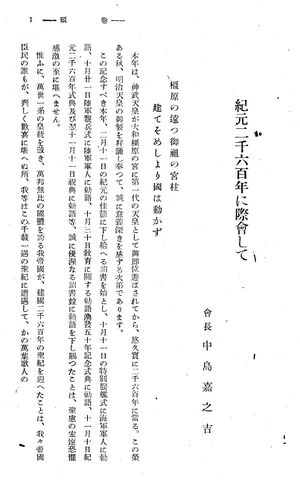 1 ― 頭 巻 ―
紀元二千六百年に際會して
會長 中島嘉之吉
橿原の遠つ御祖の宮柱
建てそめしより國は動かず
本年は、神武天皇が大和橿原の宮に第一代の天皇として御即位遊ばされてから、悠久實に二千六百年に當る。この榮
ある秋、明治天皇の御製を拜誦し奉つて、誠に意義深きを感ずる次第であります。
この記念すべき本年、二月十一日の紀元の佳節に下し給へる詔書を始とし、十月十一日の特別觀艦式に海軍軍人に勅
語、十月廿一日陸軍觀兵式に陸軍軍人に勅語、十月三十日敎育に關する勅語渙發五十年記念式典に勅語、十一月十日紀
元二千六百年式典及び翌十一月十一日祝典に勅語等、誠に優渥なる詔書竝に勅語を下し賜つたことは、聖慮の宏遠恐懼
感激の至に堪へません。
惟ふに、萬世一系の皇統を戴き、萬邦無比の國體を誇る我帝國が、建國二千六百年の聖紀を迎へたことは、我々帝國
臣民の誰もが、齊しく歡喜に堪へぬ所、我等はこの千載一遇の聖紀に遭遇して、かの萬葉歌人の